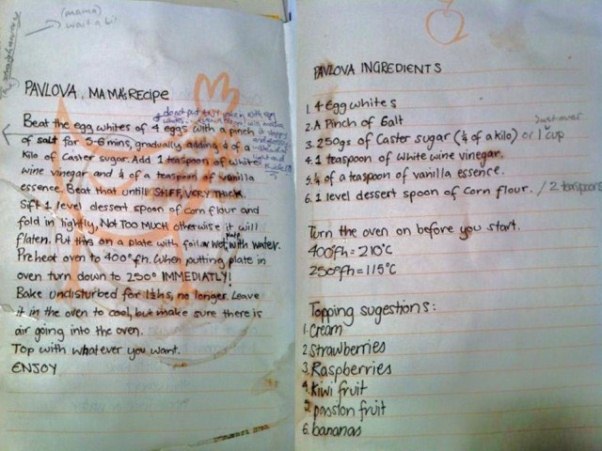 (mama)
wait a bit
PAVLOVA, MAMA'S RECIPE
do not put
Beat the egg whites of 4 eggs with a pinch
of salt for 5-6 mins, gradually adding ¼ of a
Kilo of Caster sugar. Add 1 teaspoon of white
wine vinegar and ¼ of a teaspoon of vanilla
essence. Beat that untill STIFF, VERY THICK.
Sift 1 level dessert spoon of corn flour and
fold in lightly, NOT TOO MUCH otherwise it will
flaten. Put this on a plate with foil or wet with water.
Preheat oven to 400°fh. When putting plate in
oven turn down to 250° IMMEDIATLY!
Bake undisturbed for 1½hs, no longer. Leave
it in the oven to cool, but make sure there is
air going into the oven.
Top with whatever you want.
ENJOY
PAVLOVA INGREDIENTS
1. 4 egg whites
2. A Pinch of Salt
Just over
3. 250gs of Caster sugar (¼ of a kilo) or 1 cup
4. 1 teaspoon of white wine vinegar.
5. ¼ of a teaspoon of vanilla essence.
6. 1 level dessert spoon of corn flour. / 2 teaspoons
Turn the oven on before you start.
400°fh = 210°C
250°fh = 115°C
Topping sugestions:
1. Cream
2. Strawberries
3. Raspberries
4. Kiwi fruit
5. passion fruit
6. bananas